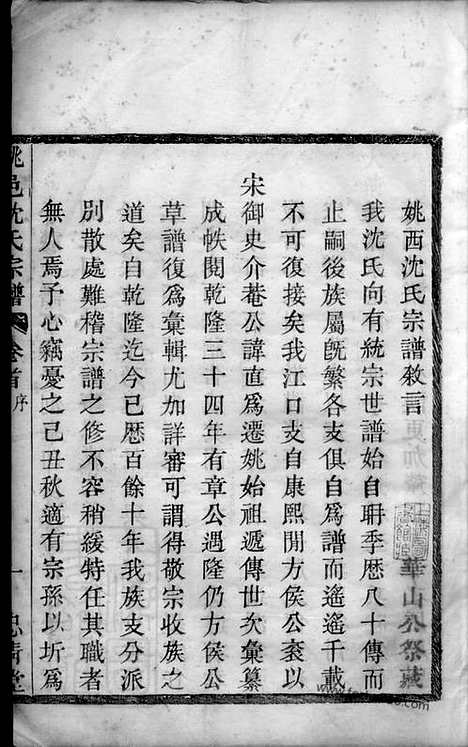 姚西沈氏宗譜敘言
我沈氏向有統宗世譜始自聃季歷八十傳而
止嗣後族屬旣繁各支俱自爲譜而遙遙千載
不可復接矣我江口支自康熙閒方侯公袞以
宋御史介菴公諱直爲遷姚始祖遞傳世次彙纂
成帙閱乾隆三十四年有章公遇隆仍方侯公
草譜復爲彙輯尤加詳審可謂得敬宗收族之
道矣自乾隆迄今已歷百餘十年我族支分派
別散處難稽宗譜之修不容稍緩特任其職者
無人焉予心竊憂之己丑秋適有宗孫以圻爲
姚邑沈氏宗譜 卷首 序 一 忠清堂
華山公祭